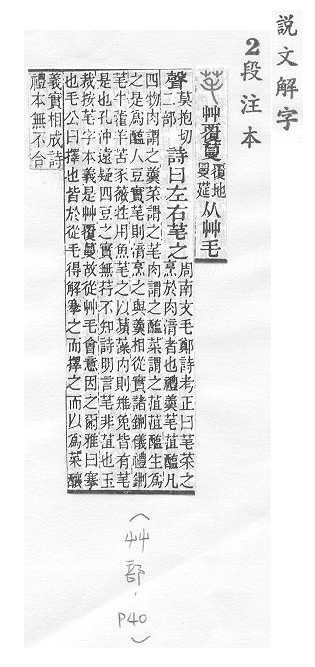 說文解字
2段注本
芼 艸覆蔓 覆地曼莚 从艸毛
聲 莫抱切二部 詩曰左右芼之 周南文毛鄭詩考正曰芼菜之
烹於肉湆者也禮羹芼菹醢凡
四物肉謂之羹菜謂之芼肉謂之醢菜謂之菹菹醢生爲
之是爲醢人豆實芼則湆烹之與羹相從實諸鉶儀禮鉶
芼牛藿羊苦豕薇牲用魚芼之以蘋藻內則雉兔皆有芼
是也孔沖遠疑四豆之實無荇不知詩明言芼非菹也玉
裁按芼字本義是艸覆蔓故從艸毛會意因之爾雅曰搴
也毛公曰擇也皆於從毛得解搴之而擇之而以爲菜釀
義實相成詩
禮本無不合
(艸部.P40)